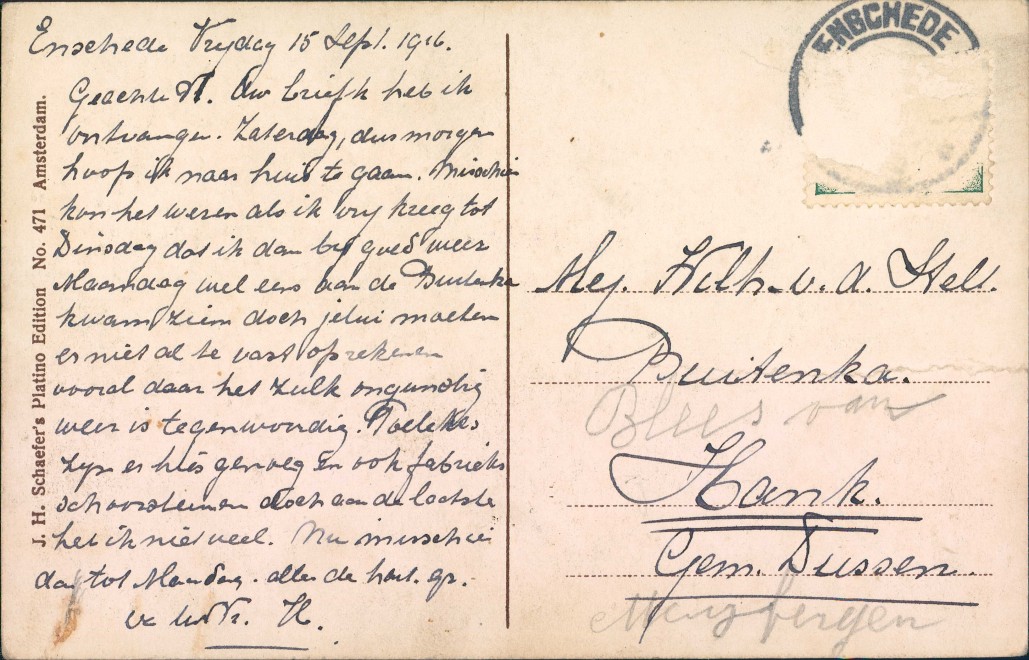 Enschede Vrydag 15 Sept. 1916.
Geachte N. Uw briefk heb ik
ontvangen. Zaterdag, dus morgen
hoop ik naar huis te gaan. Misschien
kon het wezen als ik vry kreeg tot
Dinsdag dat ik dan by goed weer
Maandag wel eens aan de Buitenka
kwam zien doch jelui moeten
er niet al te vast op rekenen
vooral daar het zulk ongunstig
weer is tegenwoordig.
zyn er hier genoeg en ook fabrieks
schoorsteenen doch aan de laatste
heb ik niet veel. Nu misschien
dag tot Mandag. allen de hart. gr.
H.
J. H. Schaefer's Platino Edition No. 471 Amsterdam.
ENSCHEDE
Mej. Wilh. v. d. Stell.
Buitenka.
Blees van
Hank.
Gem. Dussen.